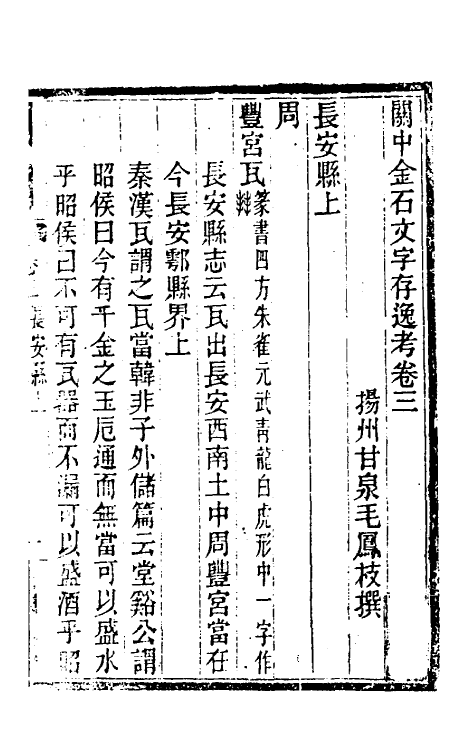 關中金石文字存逸考卷三
揚州甘泉毛鳳枝撰
長安縣上
周
豐宮瓦 篆書四方朱雀元武靑龍白虎形中一字作
長安縣志云瓦出長安西南土中周豐宮當在
今長安鄠縣界上
秦漢瓦謂之瓦當韓非子外儲篇云堂谿公謂
昭侯曰今有千金之玉巵通而無當可以盛水
乎昭侯曰不可有瓦器而不漏可以盛酒乎昭
長安縣上